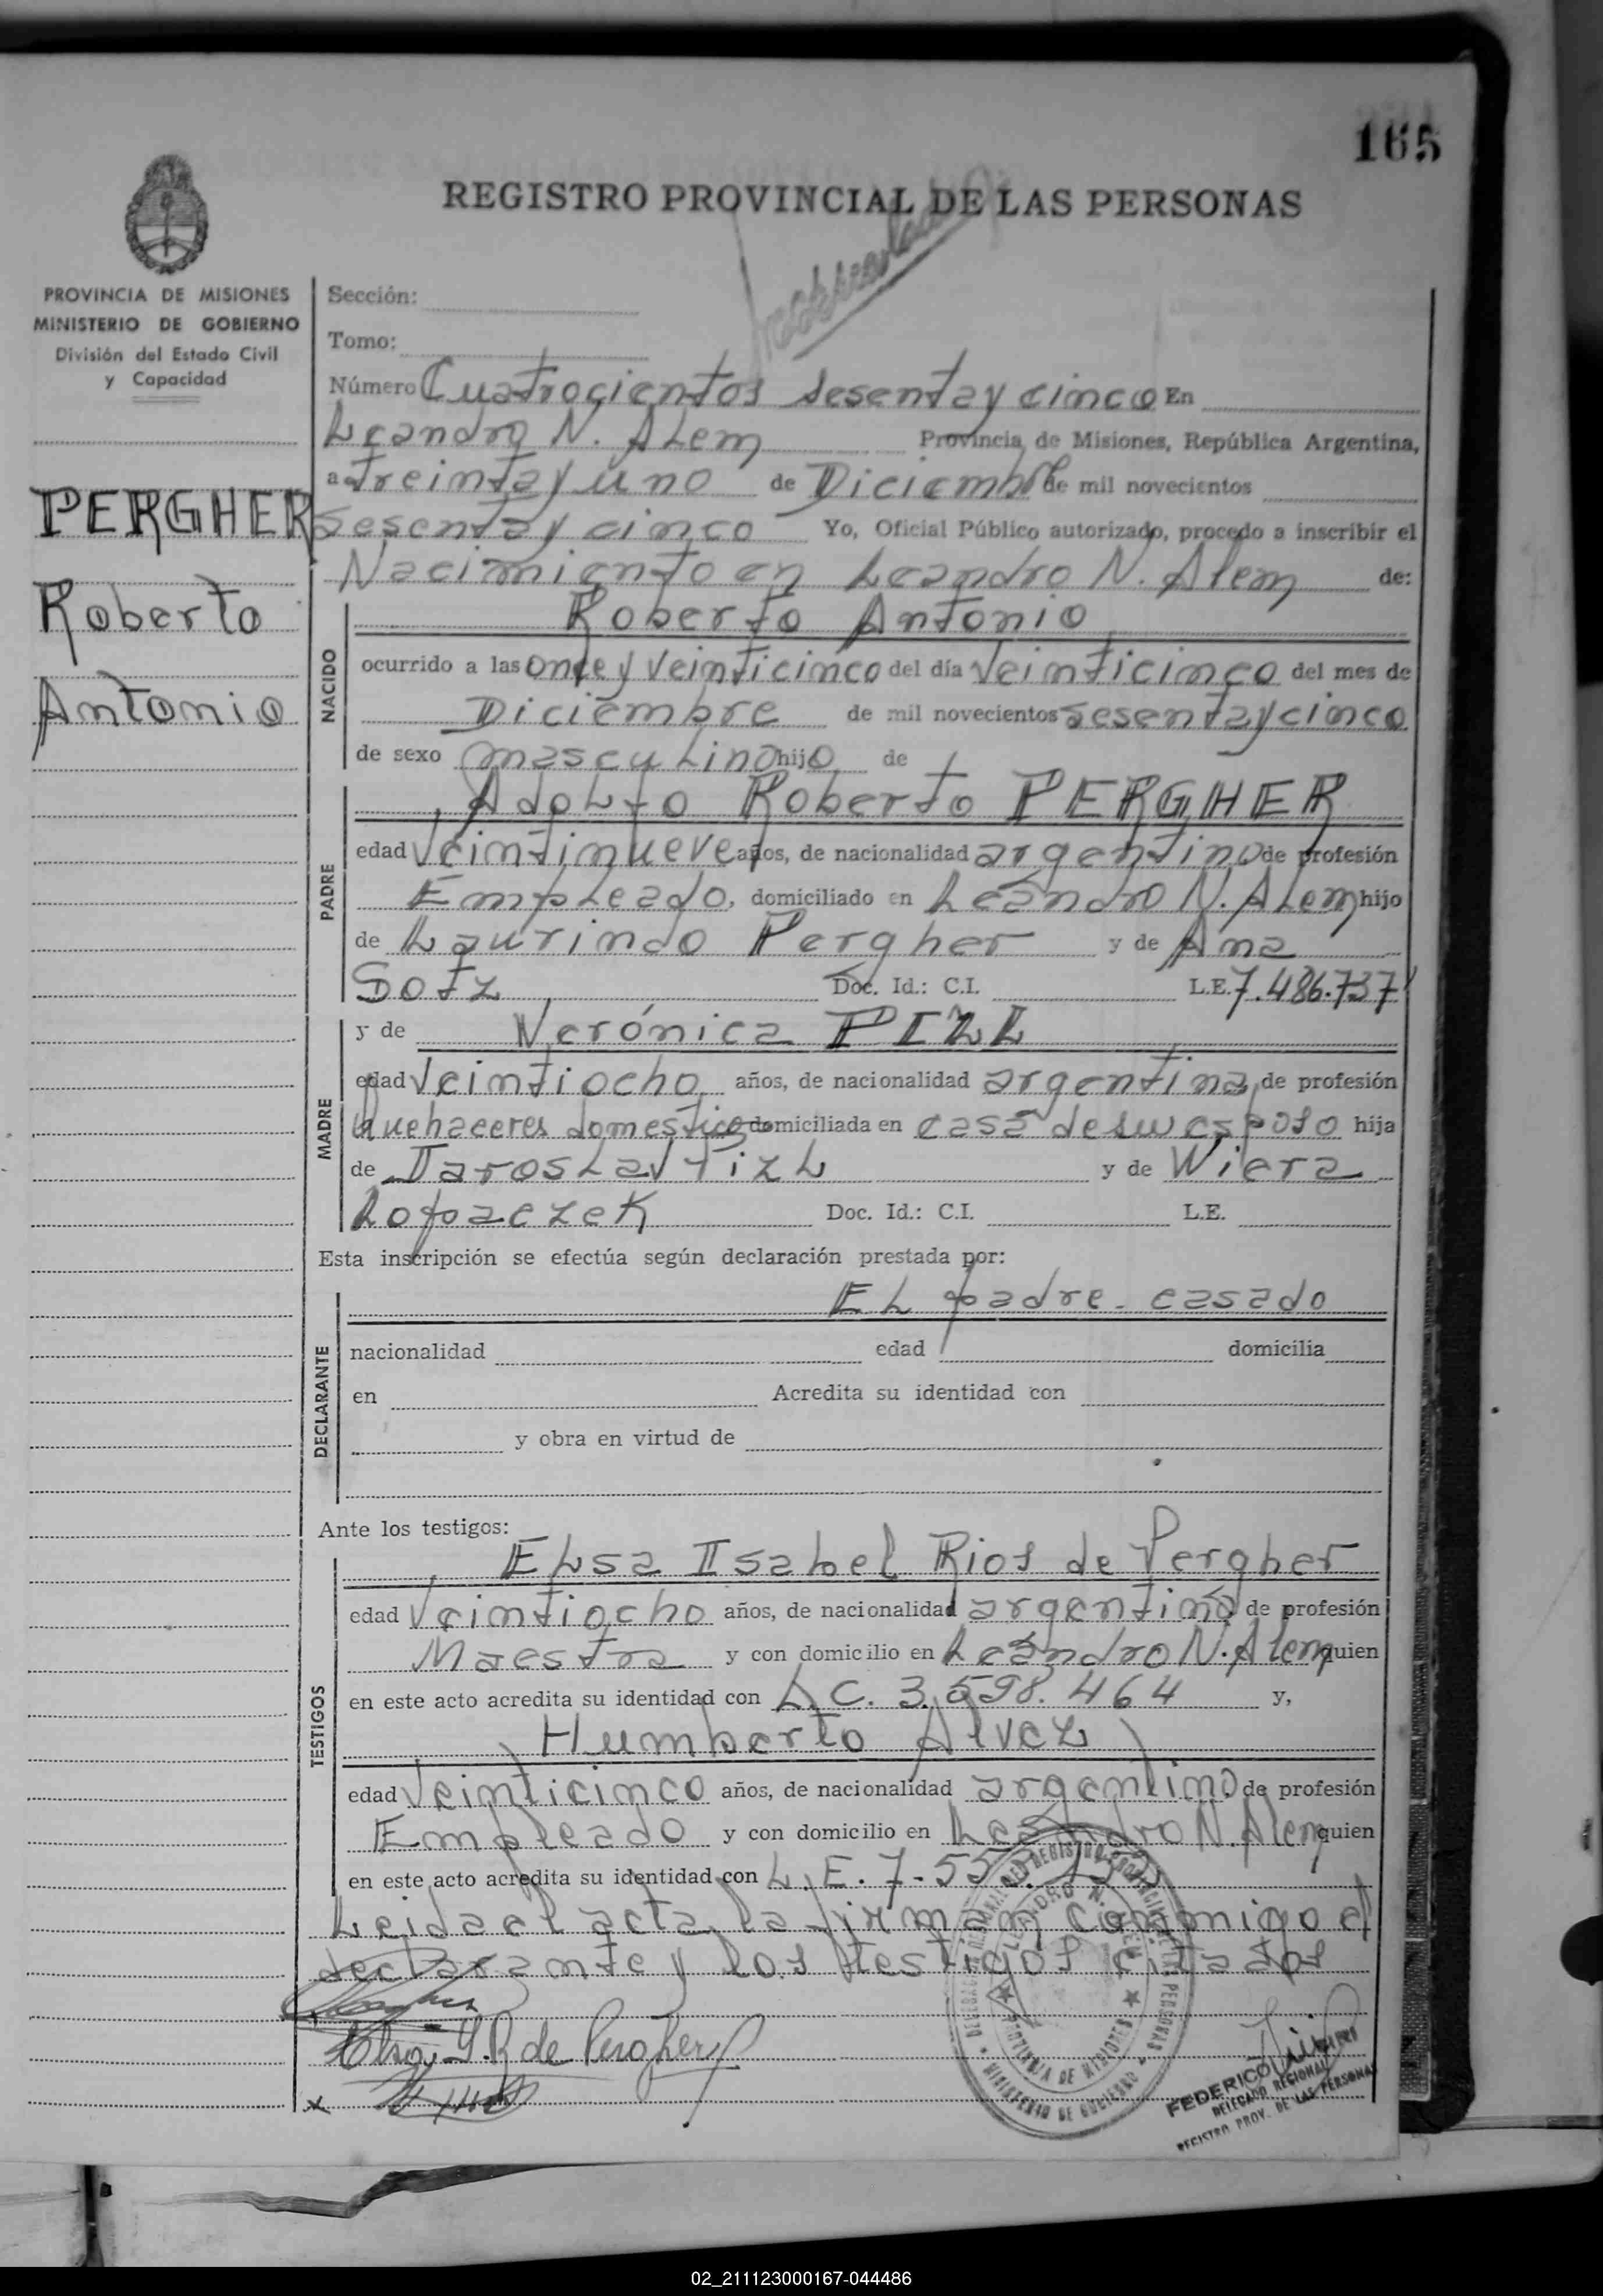 165
REGISTRO PROVINCIAL DE LAS PERSONAS
PROVINCIA DE MISIONES
MINISTERIO DE GOBIERNO
División del Estado Civil
y Capacidad
PERGHER
Roberto
Antonio
Sección:
Tomo:
Número Cuatrocientos sesenta y cinco En
Leandro N. Alem Provincia de Misiones, República Argentina,
a treinta y uno de Diciembre de mil novecientos
sesenta y cinco Yo, Oficial Público autorizado, procedo a inscribir el
Nacimiento en Leandro N. Alem de:
NACIDO
Roberto Antonio
ocurrido a las once y veinticinco del día veinticinco del mes de
Diciembre de mil novecientos sesenta y cinco
de sexo masculino hijo de
PADRE
Adolfo Roberto PERGHER
edad veintinueve años, de nacionalidad argentino de profesión
Empleado, domiciliado en Leandro N. Alem hijo
de Laurindo Pergher y de Ana
Sotz Doc. Id.: C.I. L.E. 7.486.737
MADRE
y de Verónica PIZL
edad veintiocho años, de nacionalidad argentina, de profesión
Quehaceres domestico domiciliada en casa de su esposo hija
de Jaroslav Pizl y de Wiera
Lopaczek Doc. Id.: C.I. L.E.
Esta inscripción se efectúa según declaración prestada por:
DECLARANTE
El padre - casado
nacionalidad edad domicilia
en Acredita su identidad con
y obra en virtud de
Ante los testigos:
TESTIGOS
Elsa Isabel Rios de Pergher
edad veintiocho años, de nacionalidad argentina de profesión
Maestra y con domicilio en Leandro N. Alem quien
en este acto acredita su identidad con L.C. 3.598.464 y,
Humberto Alvez
edad veinticinco años, de nacionalidad argentino de profesión
Empleado y con domicilio en Leandro N. Alem quien
en este acto acredita su identidad con L.E. 7-55
Leida el acta, la firman conmigo el
declarante y los testigos citados
Elsa I. R de Pergher
FEDERICO
DELEGADO REGIONAL
REGISTRO PROV. DE LAS PERSONAS
LEANDRO N. ALEM
PROVINCIA DE MISIONES
MINISTERIO DE GOBIERNO
02_211123000167-044486